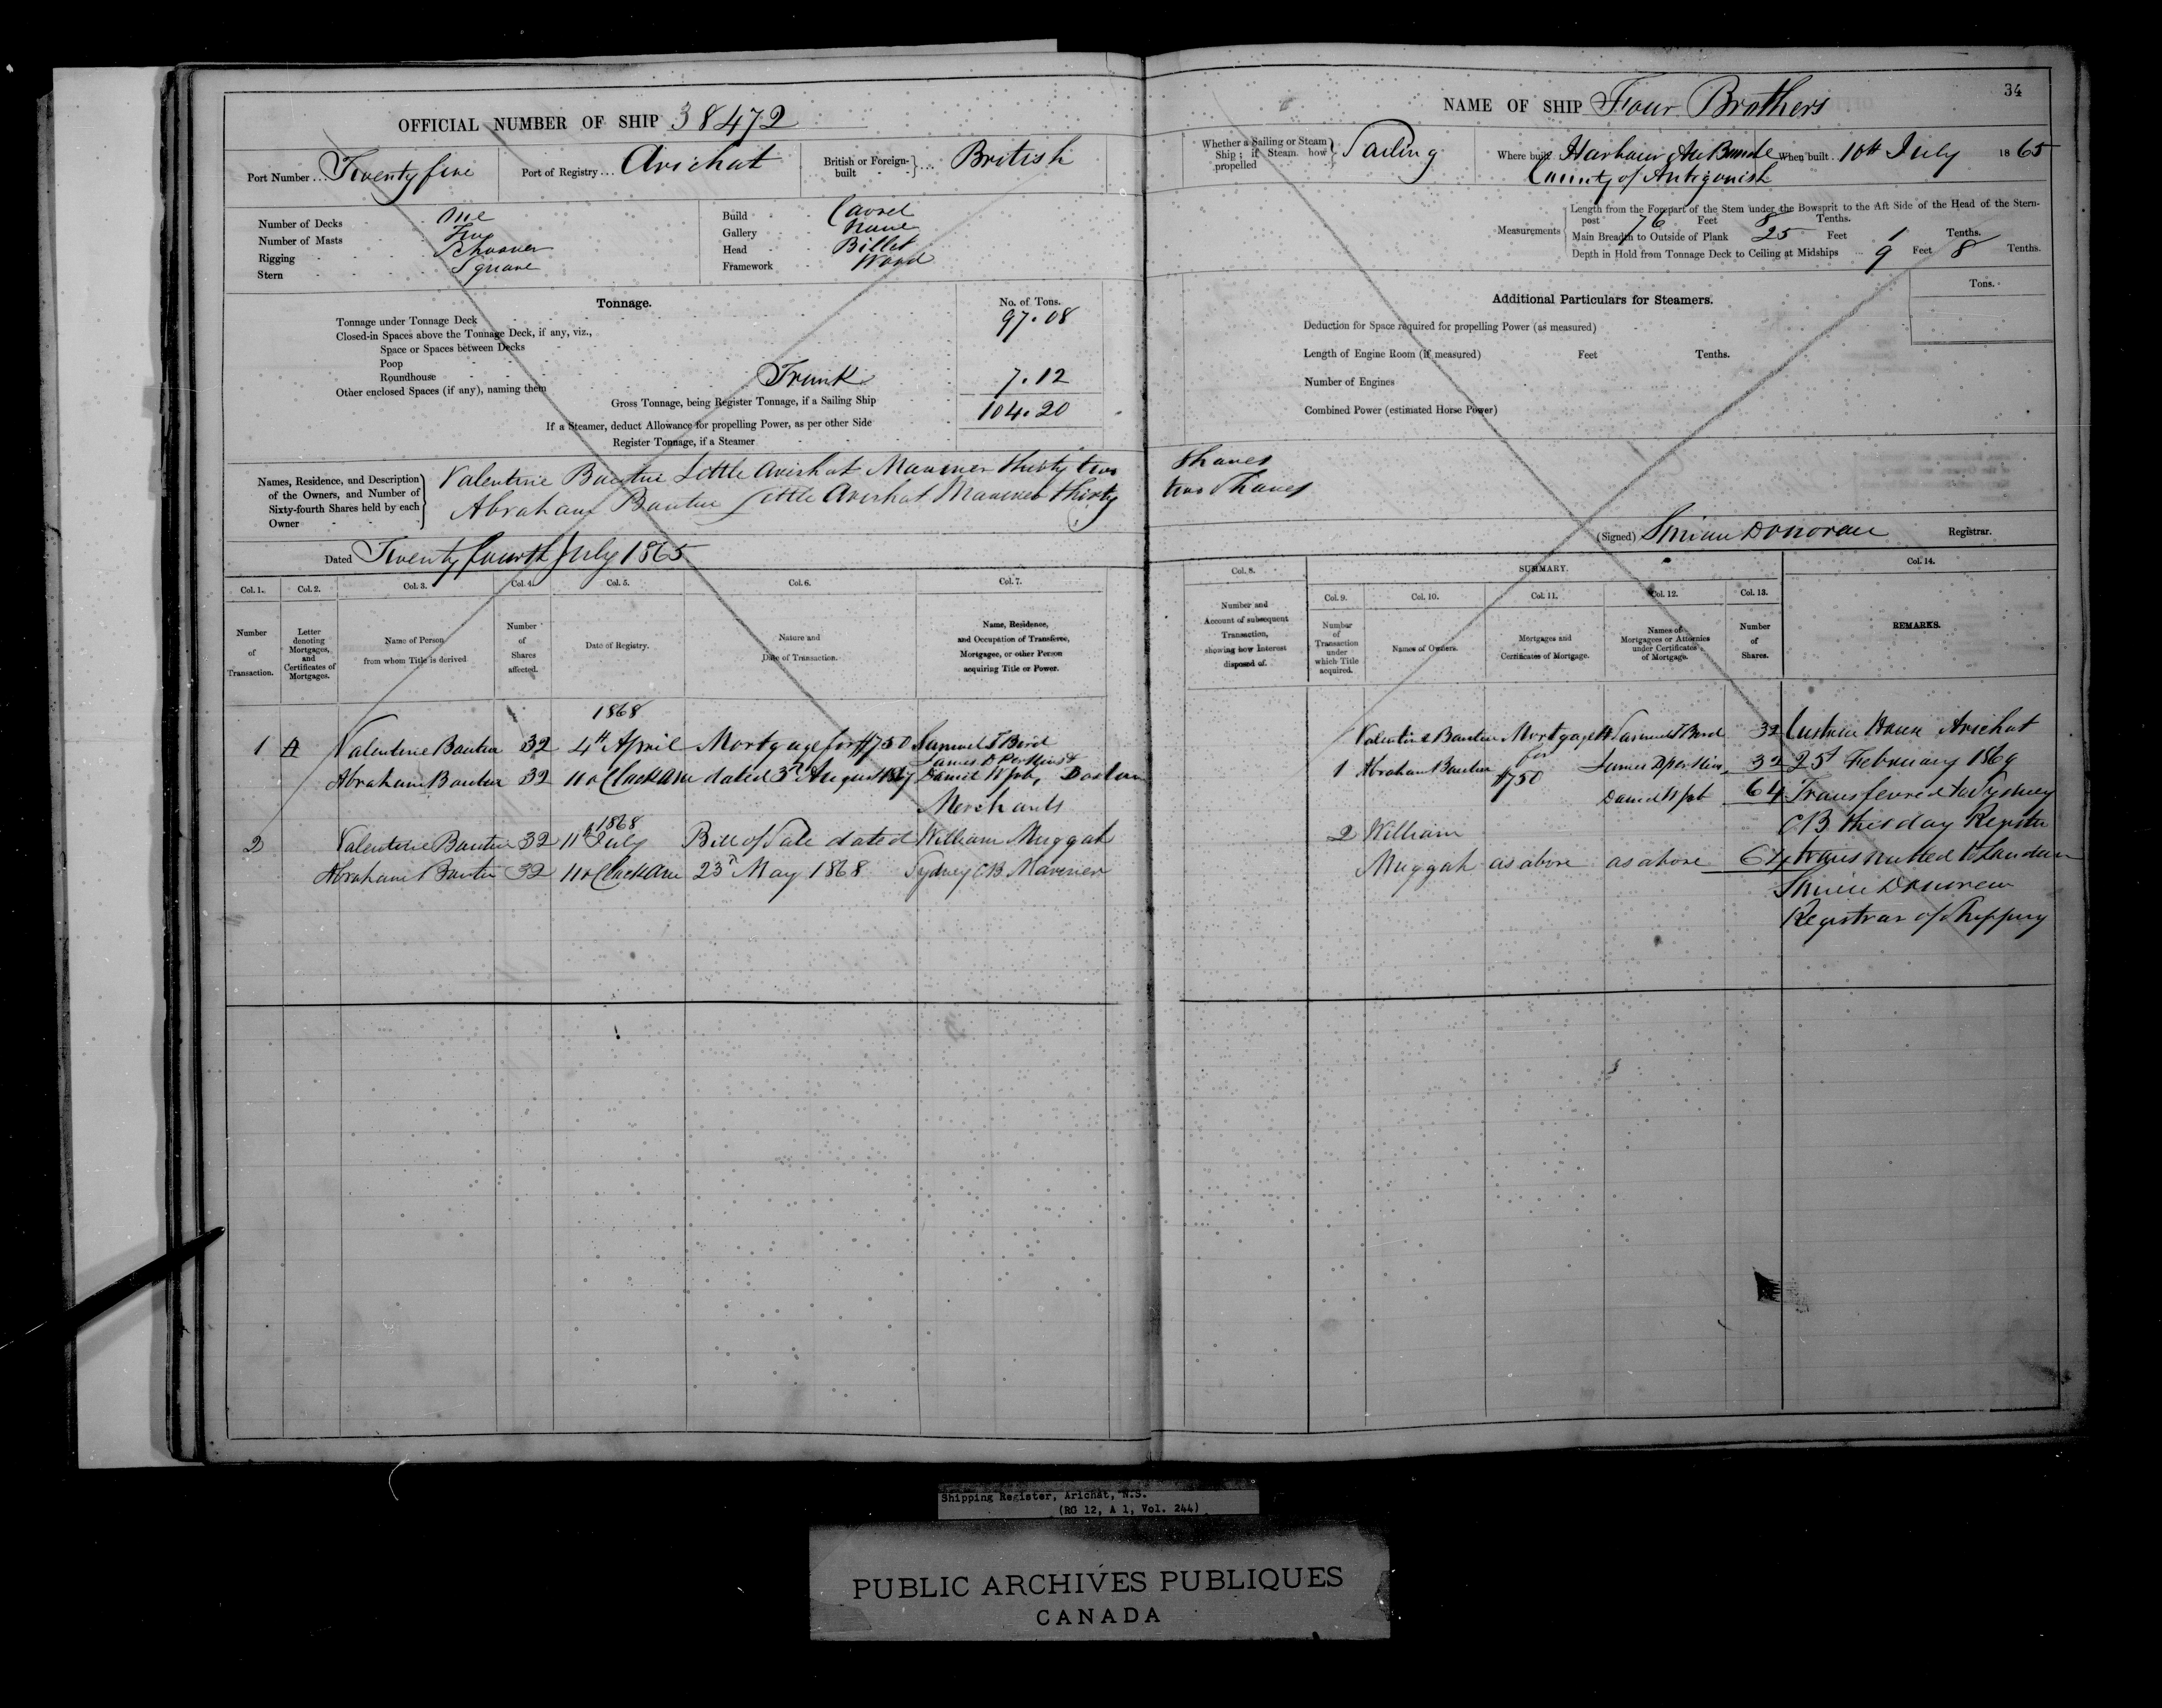 OFFICIAL NUMBER OF SHIP 38472
Port Number ... Twenty five
Port of Registry ... Arichat
British or Foreign-built } ... British
Number of Decks One
Number of Masts Two
Rigging Schooner
Stern Square
Build Carvel
Gallery None
Head Billet
Framework Wood
Tonnage.
No. of Tons.
Tonnage under Tonnage Deck 97.08
Closed-in Spaces above the Tonnage Deck, if any, viz.,
Space or Spaces between Decks
Poop
Roundhouse
Other enclosed Spaces (if any), naming them Trunk 7.12
Gross Tonnage, being Register Tonnage, if a Sailing Ship 104.20
If a Steamer, deduct Allowance for propelling Power, as per other Side
Register Tonnage, if a Steamer
Names, Residence, and Description
of the Owners, and Number of
Sixty-fourth Shares held by each
Owner
Valentine Little Arichat Mariner thirty two
Abraham Little Arichat Mariner thirty
Dated Twenty fourth July 1865
Col. 1. Col. 2. Col. 3. Col. 4. Col. 5. Col. 6. Col. 7.
Number of Transaction.
Letter denoting Mortgages, and Certificates of Mortgages.
Name of Person from whom Title is derived
Number of Shares affected.
Date of Registry.
Nature and Date of Transaction.
Name, Residence, and Occupation of Transferee, Mortgagee, or other Person acquiring Title or Power.
1868
1 A Valentine 32 4th April Mortgage for $750 Samuel T Bird
James D Perkins &
Abraham 32 11 o Clock AM dated 3d August 1867 Daniel W Job, Boston
Merchants
1868
2 Valentine 32 11th July Bill of Sale dated William Muggah
Abraham 32 11 o Clock AM 23d May 1868 Sydney CB Mariner
34
NAME OF SHIP Four Brothers
Whether a Sailing or Steam Ship; if Steam how propelled } Sailing
Where built Harbour Au Bouche
County of Antigonish
When built .. 10th July 1865
Measurements
Length from the Forepart of the Stem under the Bowsprit to the Aft Side of the Head of the Stern-
post 76 Feet 8 Tenths.
Main Breadth to Outside of Plank 25 Feet 1 Tenths.
Depth in Hold from Tonnage Deck to Ceiling at Midships 9 Feet 8 Tenths.
Additional Particulars for Steamers.
Tons.
Deduction for Space required for propelling Power (as measured)
Length of Engine Room (if measured) Feet Tenths.
Number of Engines
Combined Power (estimated Horse Power)
Shares
two Shares
(Signed) Simeon Donovan Registrar.
Col. 8. SUMMARY. Col. 14.
Col. 9. Col. 10. Col. 11. Col. 12. Col. 13.
Number and Account of subsequent Transaction, showing how Interest disposed of.
Number of Transaction under which Title acquired.
Names of Owners.
Mortgages and Certificates of Mortgage.
Names of Mortgagees or Attornies under Certificates of Mortgage.
Number of Shares.
REMARKS.
Valentine Mortgage A Samuel T Bird 32 Custom House Arichat
for
1 Abraham $750 James D Perkins 32 25th February 1869
Daniel W Job 64 Transferred to Sydney
CB this day Register
2 William
Muggah as above as above 64 transmitted to London
Simeon Donovan
Registrar of Shipping
Shipping Register, Arichat, N.S.
(RG 12, A 1, Vol. 244)
PUBLIC ARCHIVES PUBLIQUES
CANADA